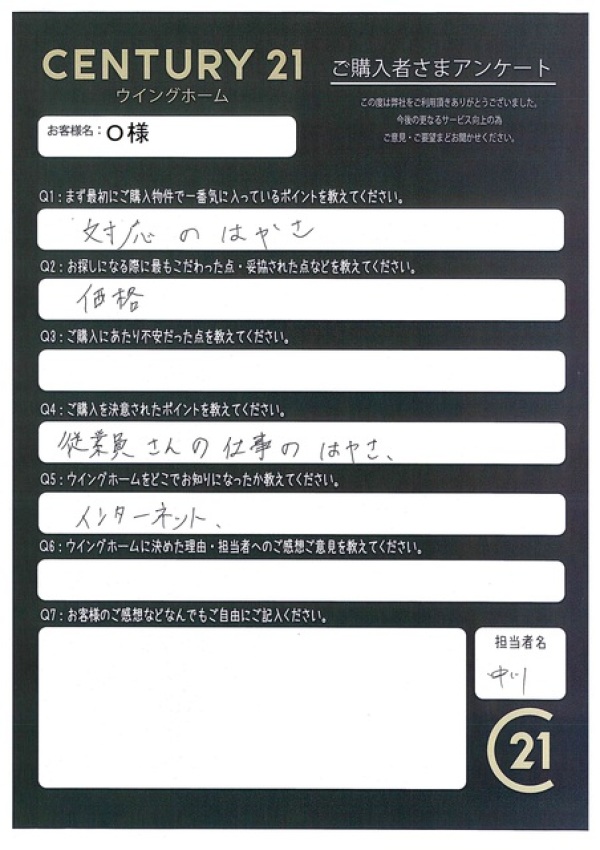 CENTURY 21
ウイングホーム
ご購入者さまアンケート
この度は弊社をご利用頂きありがとうございました。
今後の更なるサービス向上の為
ご意見・ご要望まどお聞かせください。
お客様名：O様
Q1：まず最初にご購入物件で一番気に入っているポイントを教えてください。
対応のはやさ
Q2：お探しになる際に最もこだわった点・妥協された点などを教えてください。
価格
Q3：ご購入にあたり不安だった点を教えてください。
Q4：ご購入を決意されたポイントを教えてください。
従業員さんの仕事のはやさ、
Q5：ウイングホームをどこでお知りになったか教えてください。
インターネット、
Q6：ウイングホームに決めた理由・担当者へのご感想ご意見を教えてください。
Q7：お客様のご感想などなんでもご自由にご記入ください。
担当者名
中川
C21